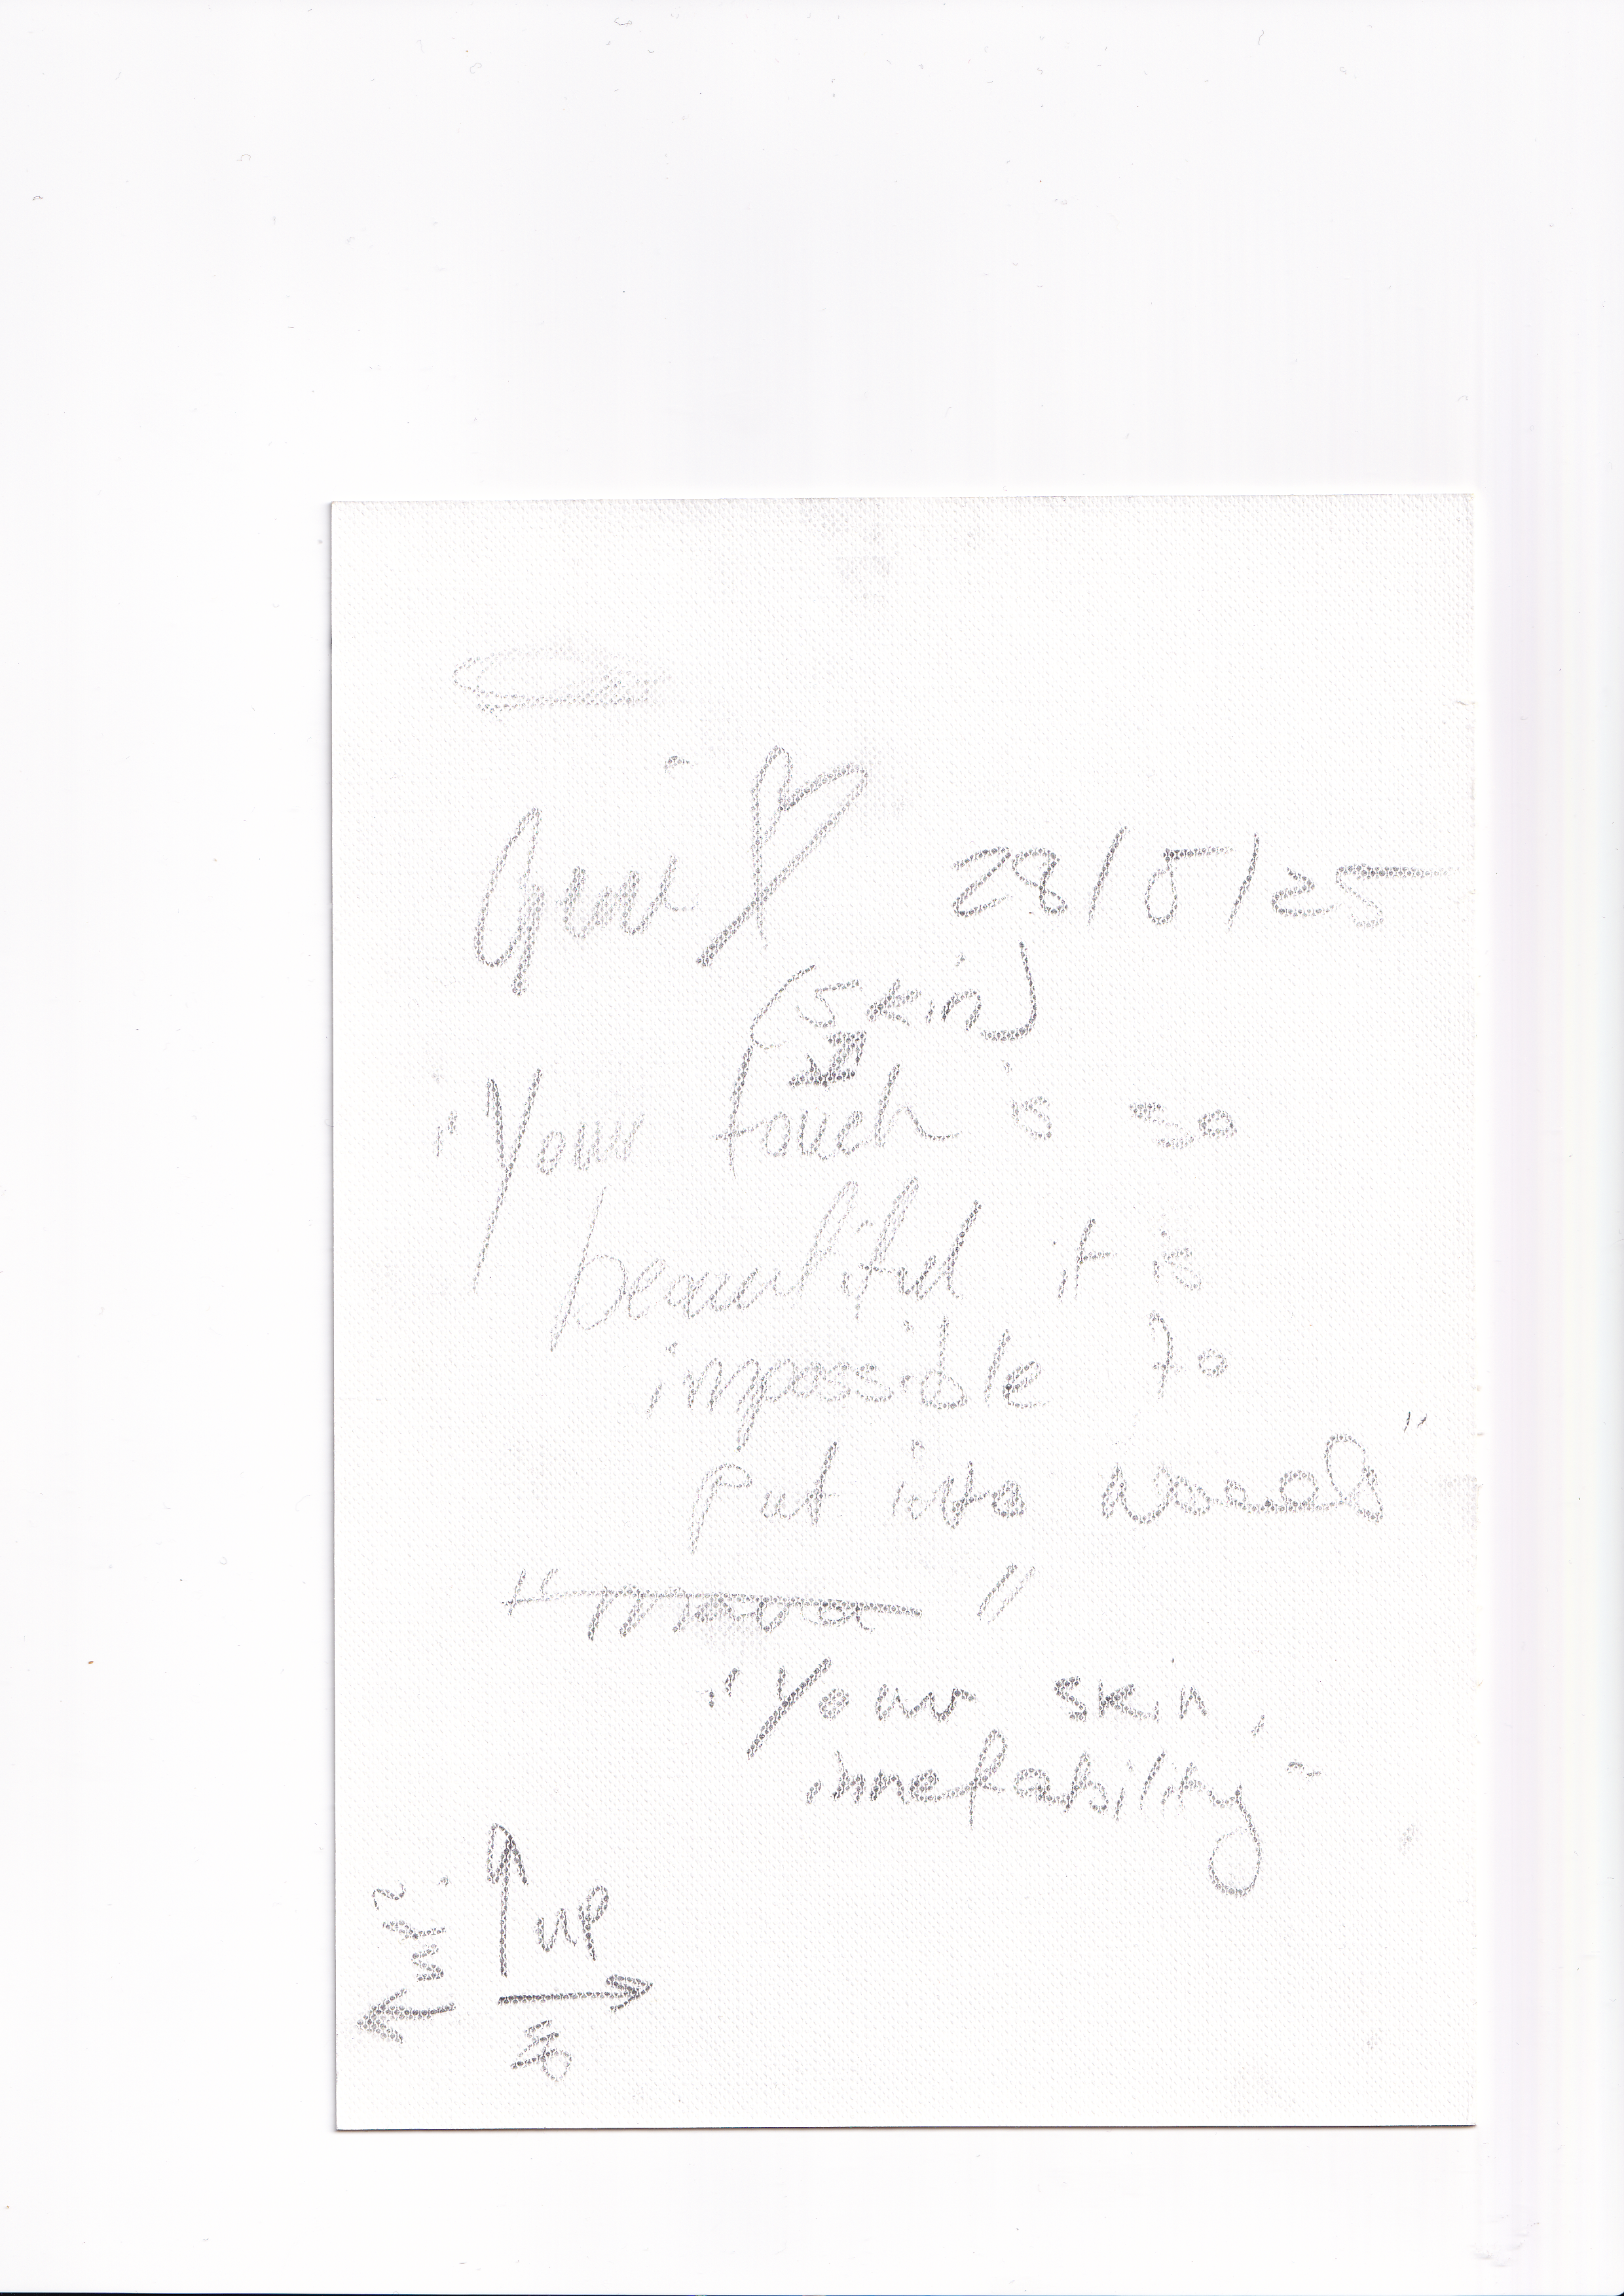 28/5/25
(skin)
"Your touch is so
beautiful it is
impossible to
put into words"
"Your skin,
innefability"
up
up?